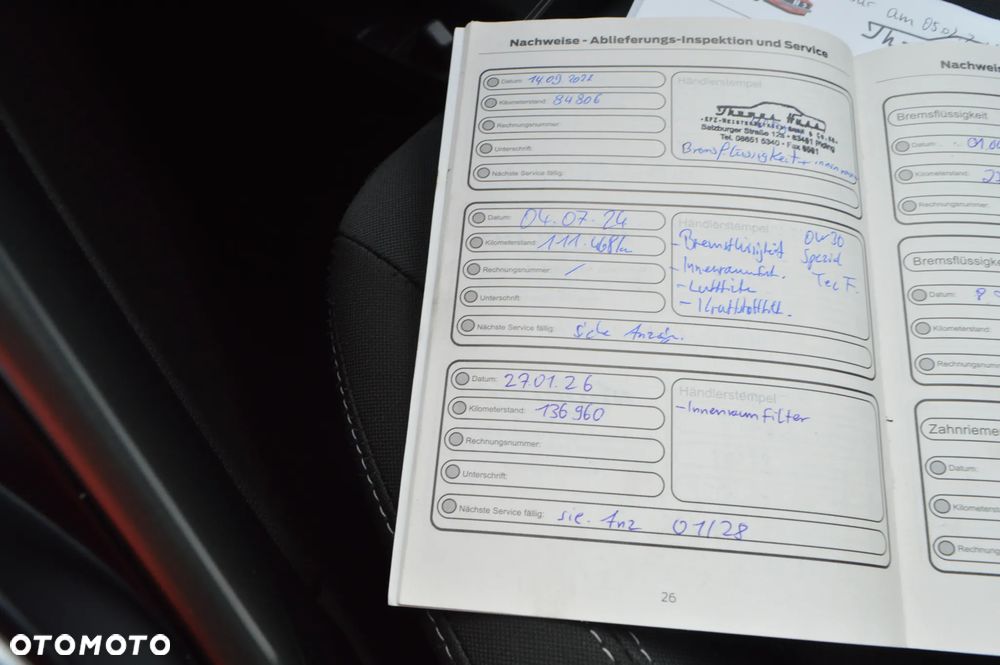 ur am 05.01.2
Nachweise - Ablieferungs-Inspektion und Service
Datum: 14.09 2021
Kilometerstand: 84806
Rechnungsnummer:
Unterschrift:
Nächste Service fällig:
Händlerstempel
Salzburger Straße 12a • 83451 Piding
Tel. 08651 5340 • Fax
Bremsflüssigkeit + innenraum
Datum: 04.07.24
Kilometerstand: 111.468km
Rechnungsnummer: /
Unterschrift:
Nächste Service fällig: siehe Anzeige.
Händlerstempel
- Bremsflüssigkeit
- Innenraumf.
- Luftfilter
- Kraftstofffilt.
0W30
Spezial
Tec F.
Datum: 27.01.26
Kilometerstand: 136 960
Rechnungsnummer:
Unterschrift:
Nächste Service fällig: sie. Anz 01/28
Händlerstempel
- Innenraumfilter
26
Nachweis
Bremsflüssigkeit
Datum:
Kilometerstand:
Rechnungsnummer:
Bremsflüssigke
Datum:
Kilometerstand:
Rechnungsnumm
Zahnrieme
Datum:
Kilometerstan
Rechnung
OTOMOTO